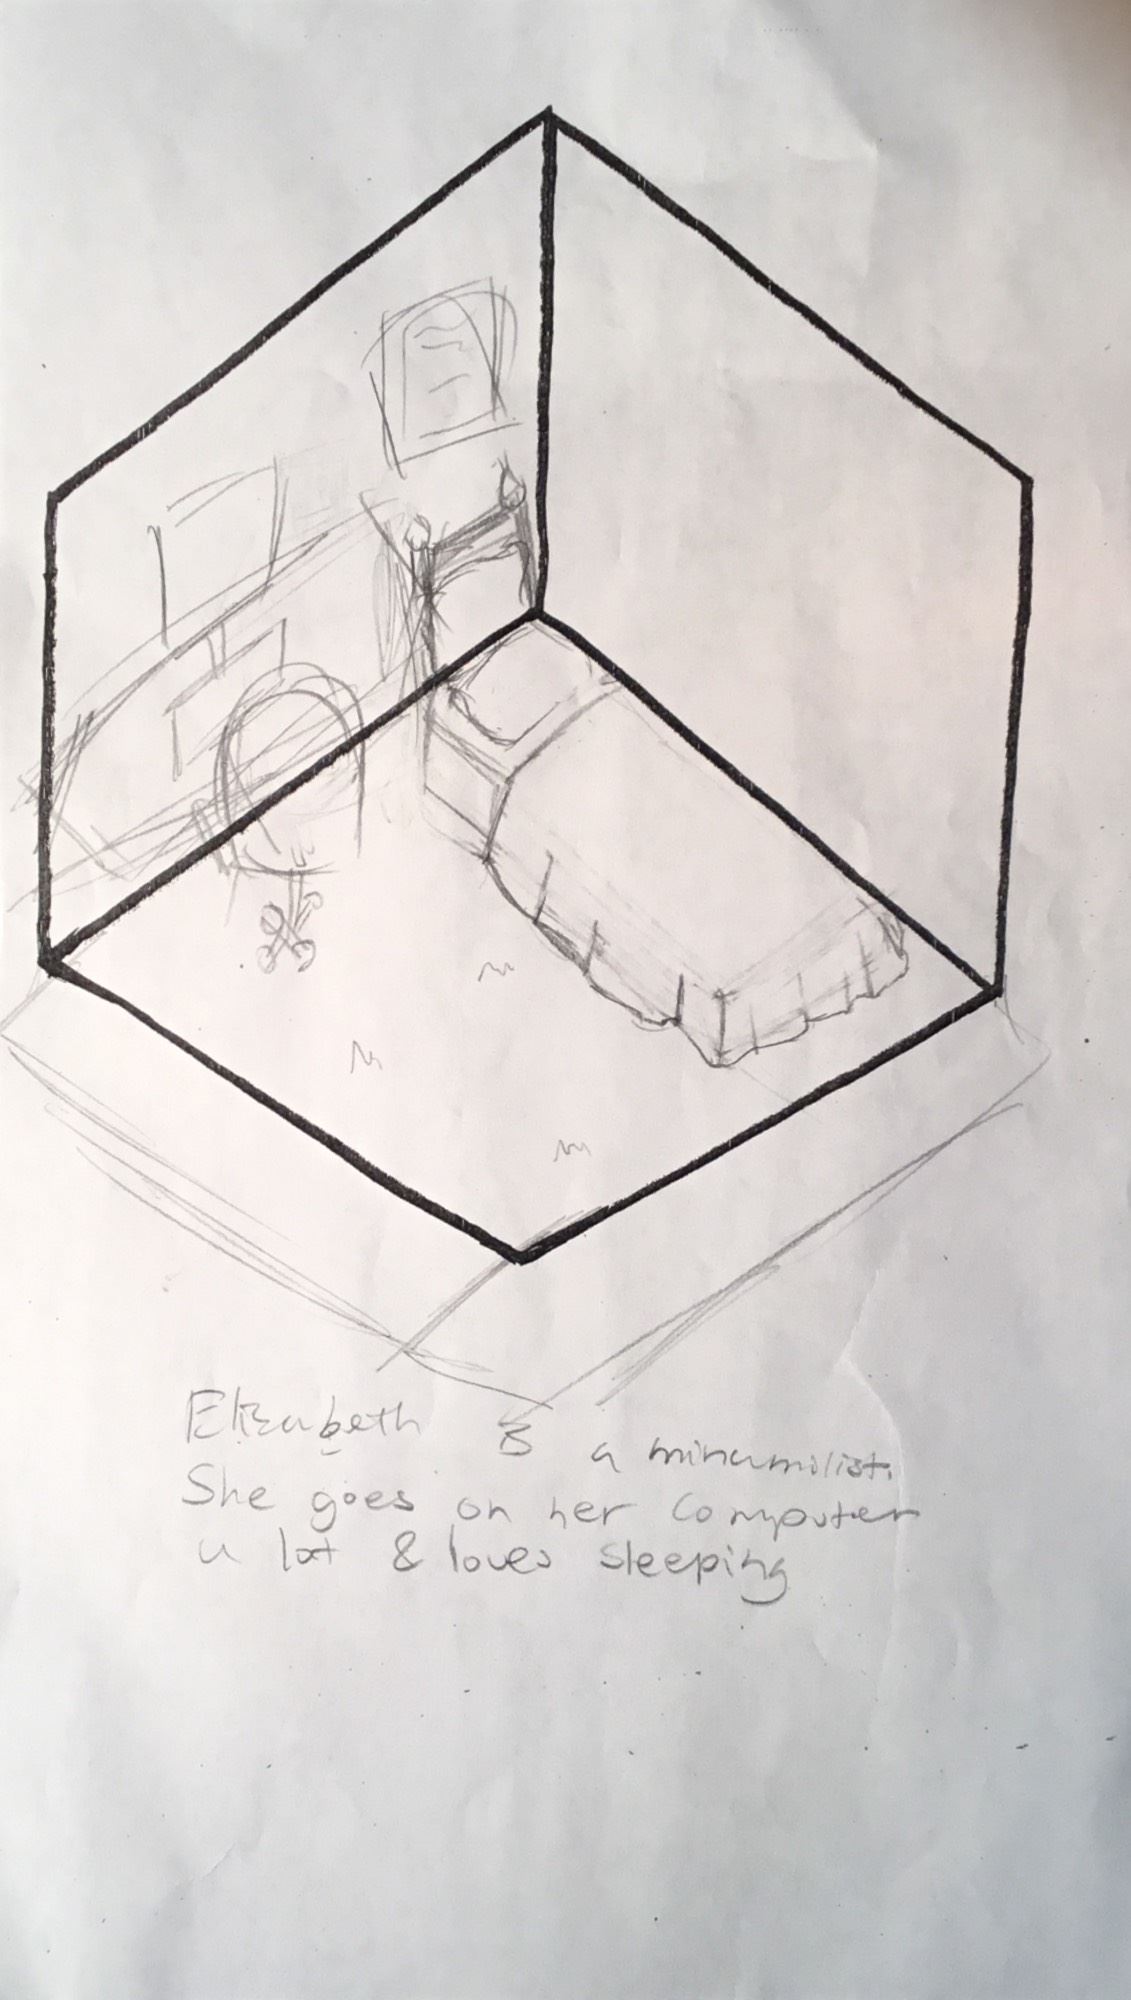 Elizabeth is a minamilist.
She goes on her computer
a lot & loves sleeping